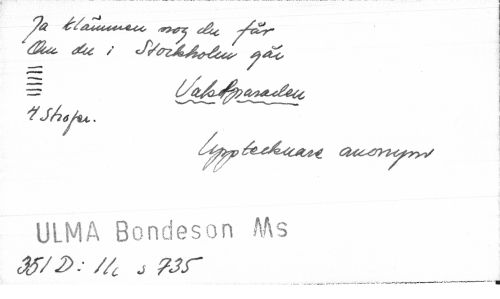 Ja klämmen nog du får
Om du i Stockholm går
4 strofer.
Vaktparaden
Upptecknare anonym
ULMA Bondeson Ms
351 D: 11c s 735